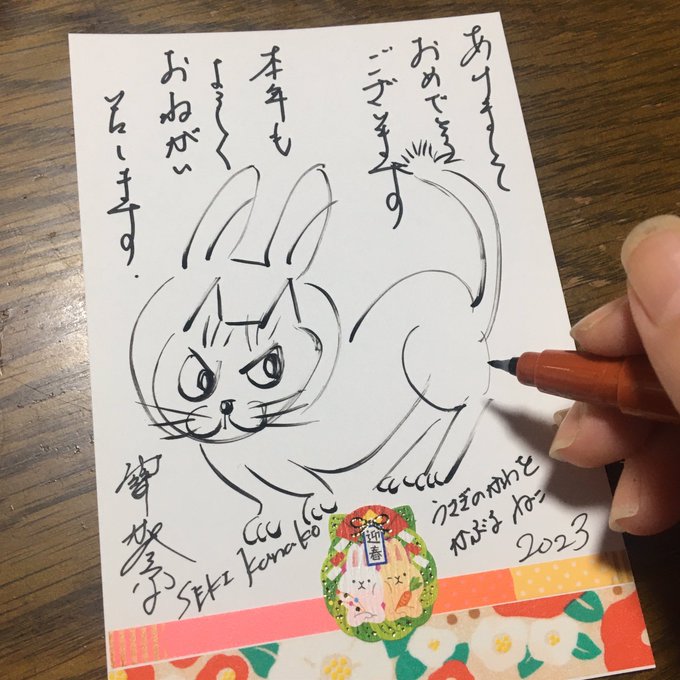 あけまして
おめでとう
ございます
本年も
よろしく
おねがい
致します.
SEKI Kanako
迎春
うさぎのかわを
かぶる ねこ
2023